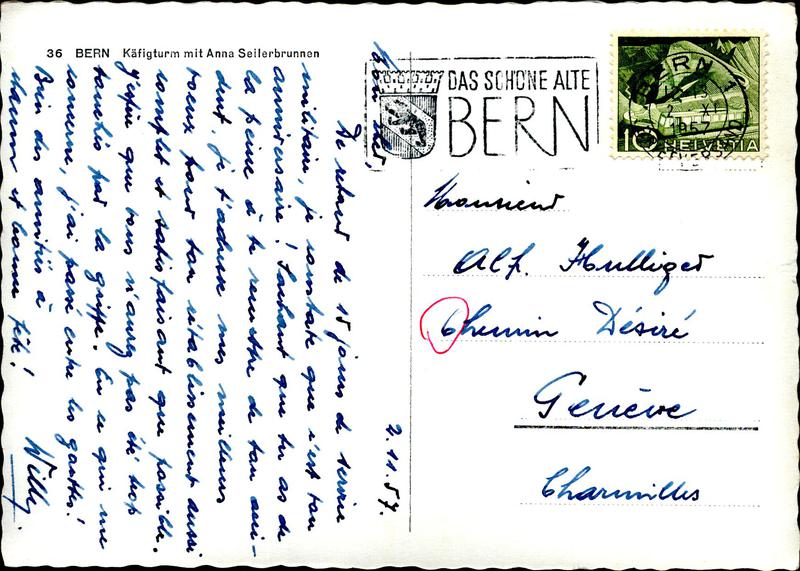 36 BERN Käfigturm mit Anna Seilerbrunnen
DAS SCHÖNE ALTE
BERN
BERN
1957
10 HELVETIA
Mon cher,
De retour de 15 jours de service
militaire, je constate que c'est ton
anniversaire! Sachant que tu as de
la peine à te remettre de ton acci-
dent, je t'adresse mes meilleurs
voeux pour ton rétablissement aussi
complet et satisfaisant que possible.
J'espère que vous n'aurez pas été trop
touchés par la grippe. En ce qui me
concerne, j'ai passé entre les gouttes!
Bien des amitiés à
chacun et bonne fête!
Willy
2.11.57.
Monsieur
Alf. Hulliger
Chemin Désiré
Genève
Charmilles